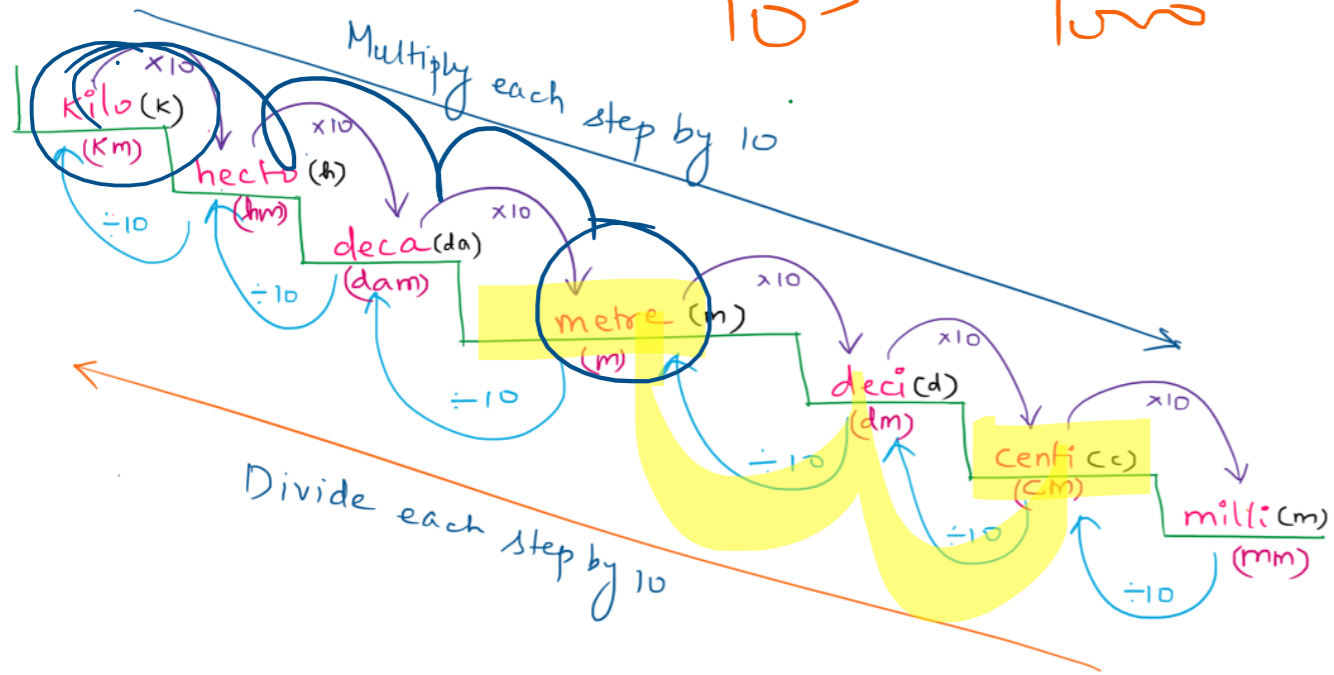 Multiply each step by 10
×10
kilo (k)
(Km)
÷10
×10
hecto (h)
(hm)
÷10
×10
deca (da)
(dam)
÷10
×10
metre (m)
(m)
÷10
×10
deci (d)
(dm)
÷10
×10
centi (c)
(cm)
÷10
milli (m)
(mm)
Divide each step by 10